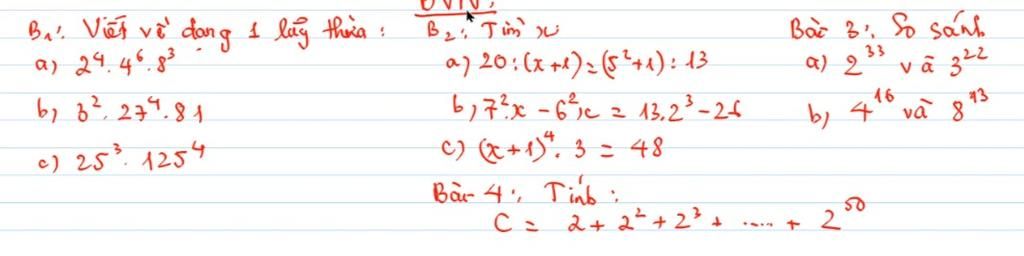 BVN:
B1: Viết về dạng 1 lũy thừa :
a) 2⁴. 4⁶. 8³
b) 3². 27⁴. 81
c) 25³. 125⁴
B2: Tìm x
a) 20 : (x+1) = (5²+1) : 13
b) 7².x - 6².x = 13.2³ - 26
c) (x+1)⁴. 3 = 48
Bài 3: So sánh
a) 2³³ và 3²²
b) 4¹⁶ và 8¹³
Bài 4: Tính :
C = 2 + 2² + 2³ + ..... + 2⁵⁰